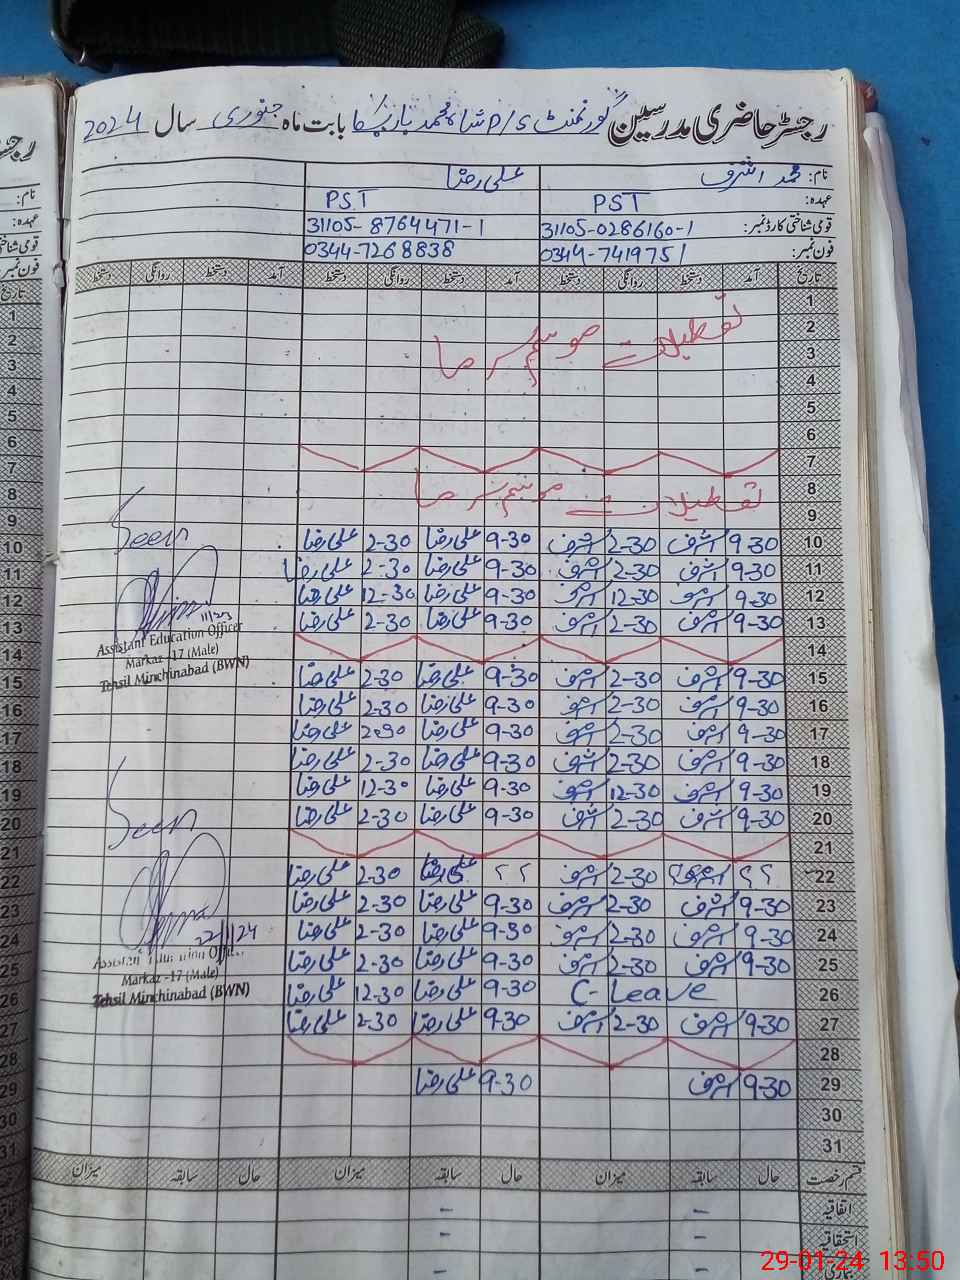 رجسٹر حاضری مدرسین گورنمنٹ P/S شاہ محمد بابت ماہ جنوری سال 2024
نام: محمد اشرف علی رضا
عہدہ: PST PST
قومی شناختی کارڈ نمبر: 31105-0286160-1 31105-8764471-1
فون نمبر: 0344-7419751 0344-7268838
تاریخ آمد دستخط روانگی دستخط آمد دستخط روانگی دستخط آمد دستخط روانگی
1
2 تعطیلات موسم سرما
3
4
5
6
7
8 تعطیلات موسم سرما
9
10 9-30 اشرف 2-30 اشرف 9-30 علی رضا 2-30 علی رضا
11 9-30 اشرف 2-30 اشرف 9-30 علی رضا 2-30 علی رضا
12 9-30 اشرف 12-30 اشرف 9-30 علی رضا 12-30 علی رضا
13 9-30 اشرف 2-30 اشرف 9-30 علی رضا 2-30 علی رضا
14
15 9-30 اشرف 2-30 اشرف 9-30 علی رضا 2-30 علی رضا
16 9-30 اشرف 2-30 اشرف 9-30 علی رضا 2-30 علی رضا
17 9-30 اشرف 2-30 اشرف 9-30 علی رضا 2-30 علی رضا
18 9-30 اشرف 2-30 اشرف 9-30 علی رضا 2-30 علی رضا
19 9-30 اشرف 12-30 اشرف 9-30 علی رضا 12-30 علی رضا
20 9-30 اشرف 2-30 اشرف 9-30 علی رضا 2-30 علی رضا
21
22 ؟ ؟ اشرف 2-30 اشرف ؟ ؟ علی رضا 2-30 علی رضا
23 9-30 اشرف 2-30 اشرف 9-30 علی رضا 2-30 علی رضا
24 9-30 اشرف 2-30 اشرف 9-30 علی رضا 2-30 علی رضا
25 9-30 اشرف 2-30 اشرف 9-30 علی رضا 2-30 علی رضا
26 C-Leave 9-30 علی رضا 12-30 علی رضا
27 9-30 اشرف 2-30 اشرف 9-30 علی رضا 2-30 علی رضا
28
29 9-30 اشرف 9-30 علی رضا
30
31
قسم رخصت حال سابقہ میزان حال سابقہ میزان حال سابقہ میزان
اتفاقیہ - -
استحقاقیہ - -
بیماری - -
Seen
Assistant Education Officer
Markaz -17 (Male)
Tehsil Minchinabad (BWN)
Seen
22/1/24
Markaz -17 (Male)
Tehsil Minchinabad (BWN)
رجسٹر
نام:
عہدہ:
قومی شناختی
فون نمبر:
تاریخ
1
2
3
4
5
6
7
8
9
10
11
12
13
14
15
16
17
18
19
20
21
22
23
24
25
26
27
28
29
30
31
29-01-24 13:50